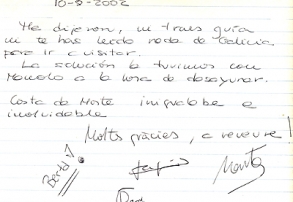 10-9-2002
Me dijeron, ni traes guía
ni te has leido nada de Galicia
para ir a visitar.
La solución la tuvimos con
Manolo a la hora de desayunar.
Costa da Morte inigualable e
inolvidable
Moltes gràcies, a reveure!
Marta
David